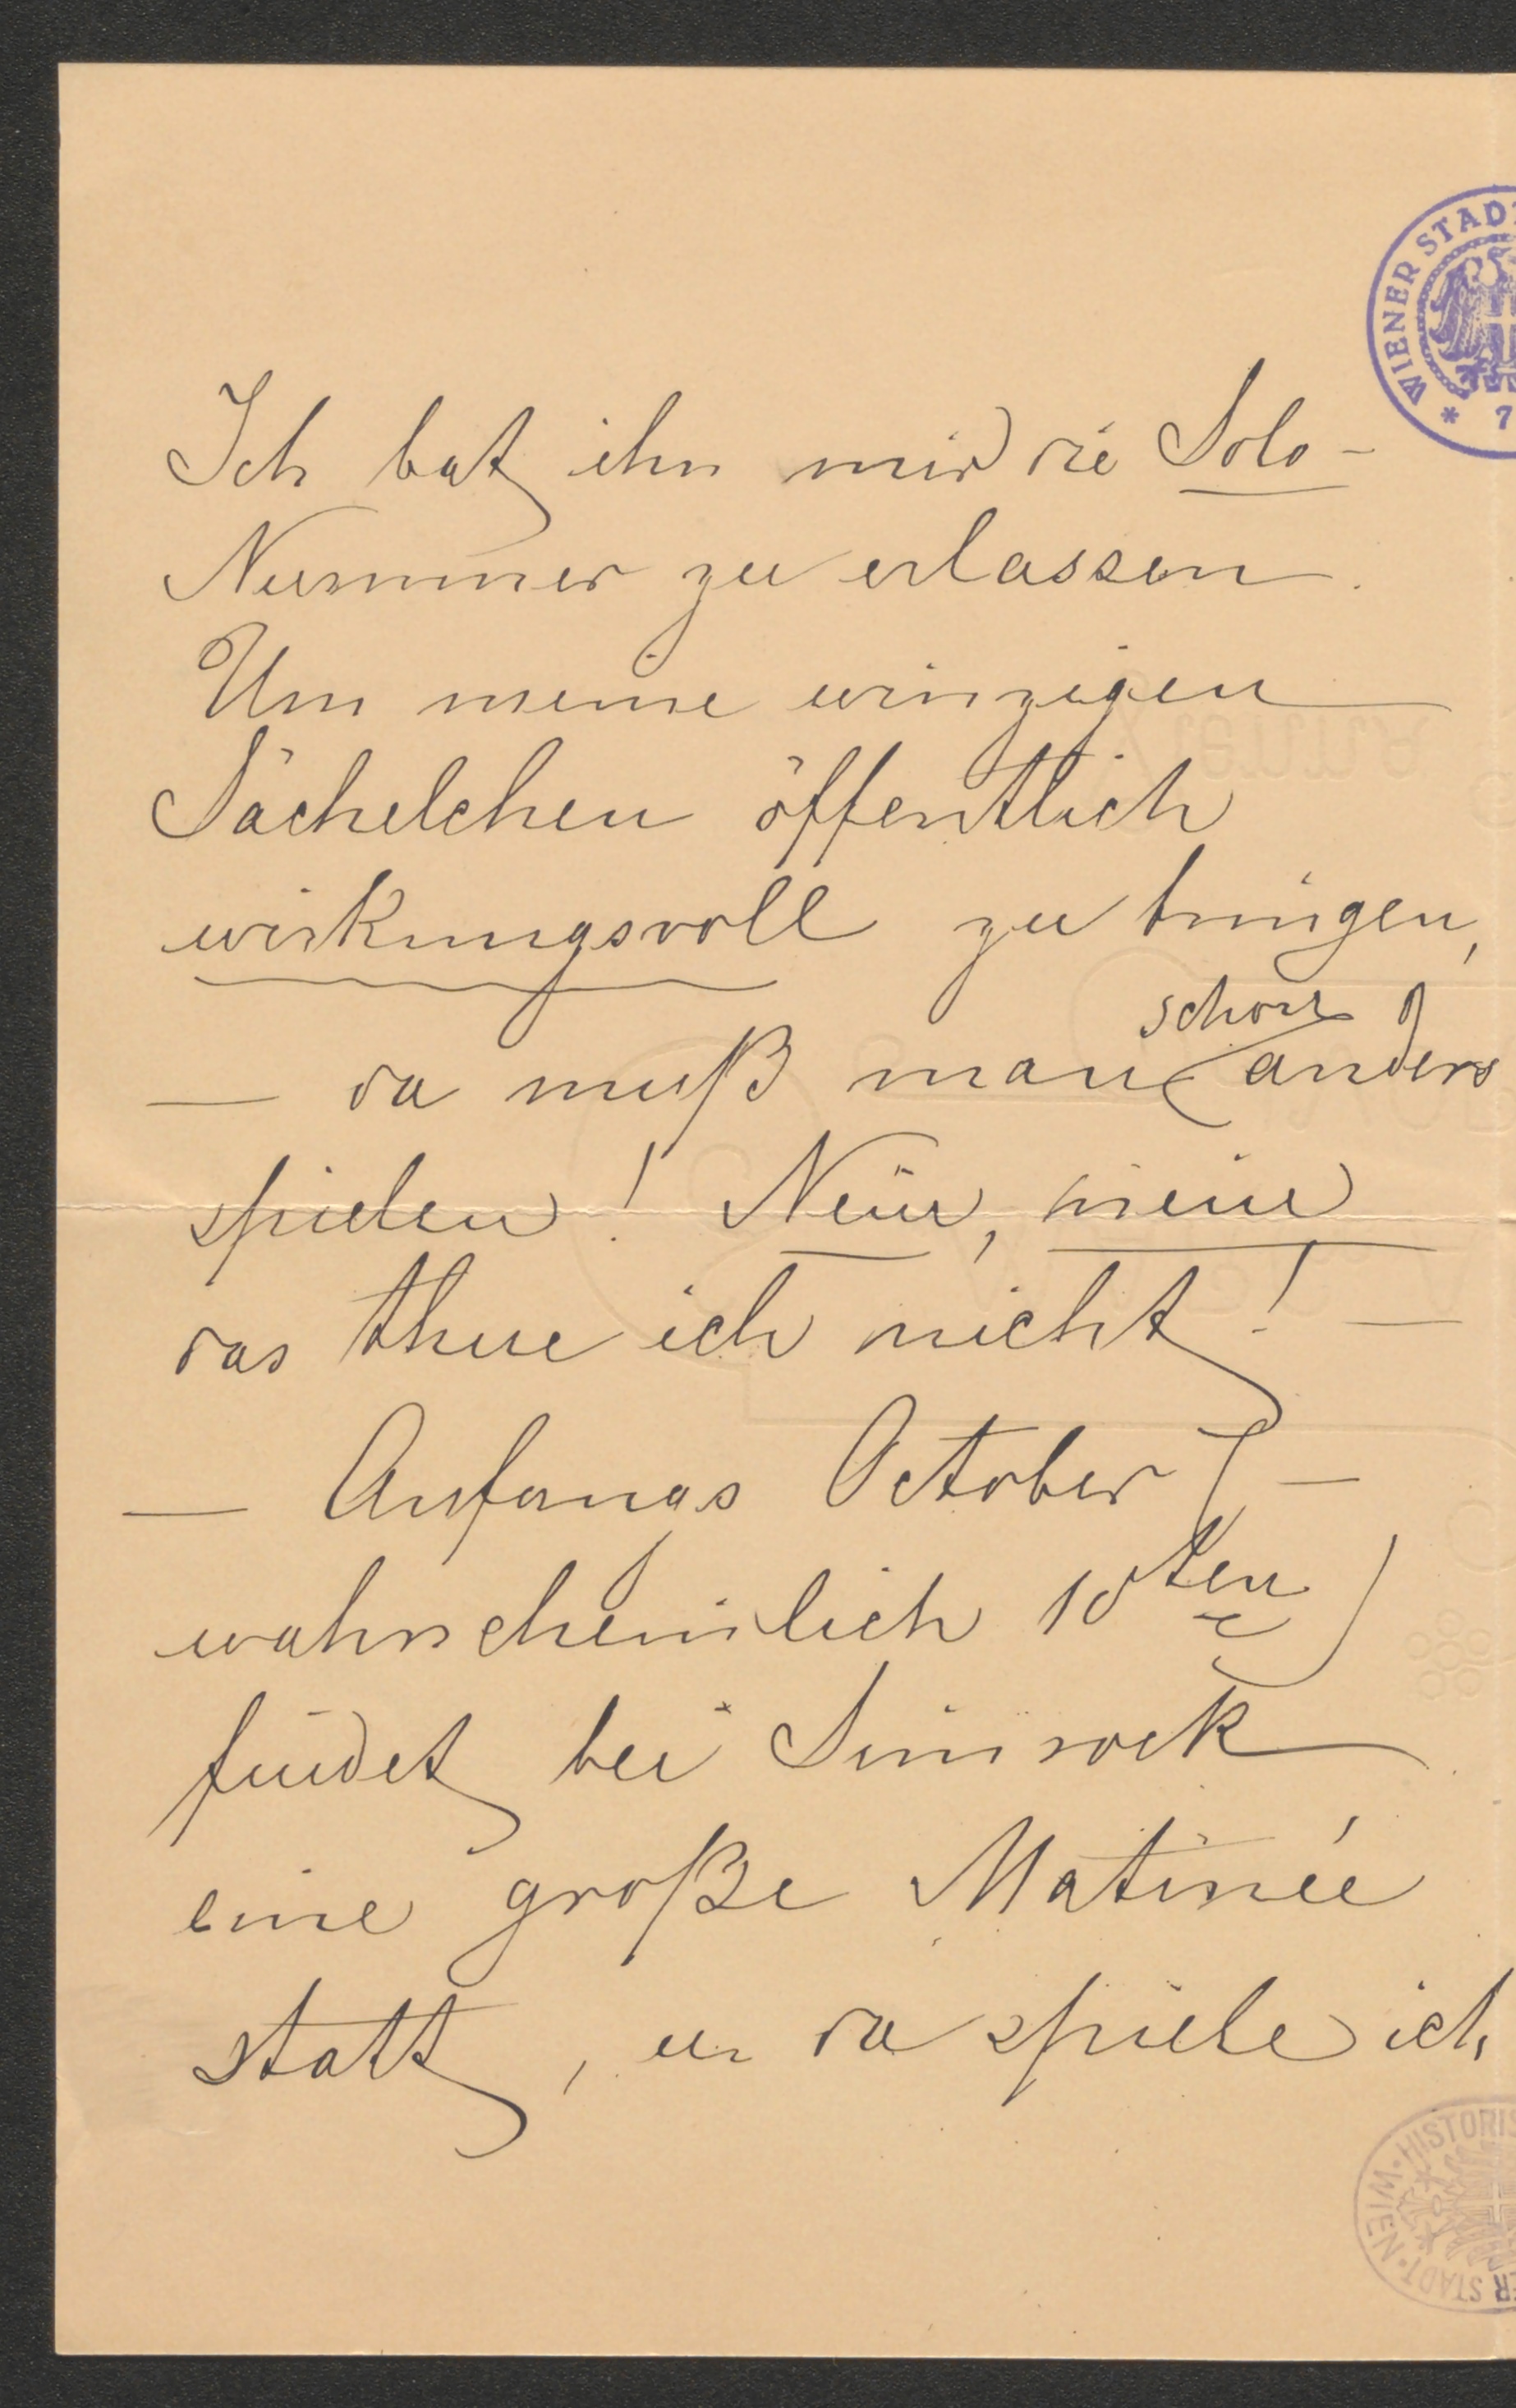 WIENER STADT
* 7
Ich bat ihn mir die Solo-
Nummer zu erlassen.
Um meine winzigen
Sächelchen öffentlich
wirkungsvoll zu bringen,
schon
— da muß man anders
spielen! Nein, nein
das thue ich nicht! —
— Anfangs October (—
wahrscheinlich 10ten)
findet bei Simrock
eine große Matinée
statt, u. da spiele ich